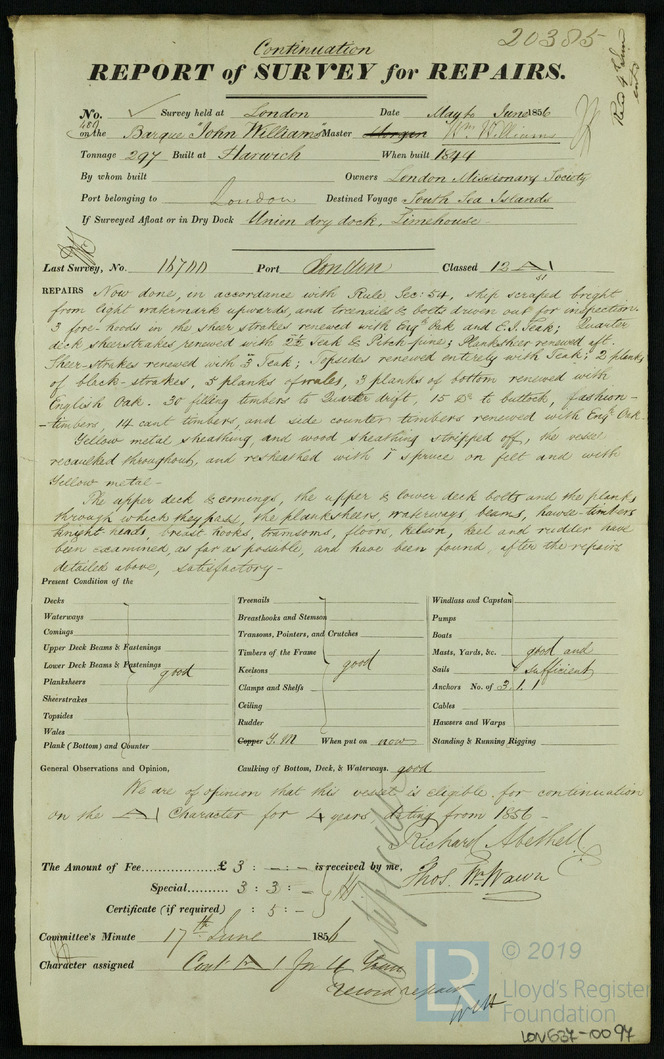 20385
Continuation
REPORT of SURVEY for REPAIRS.
No. Survey held at London Date May to June 1856
on the Barque "John Williams" Master Morgan Wm Williams
Tonnage 297 Built at Harwich When built 1844
By whom built Owners London Missionary Society
Port belonging to London Destined Voyage South Sea Islands
If Surveyed Afloat or in Dry Dock Union dry dock, Limehouse
Last Survey, No. Port London Classed 12 A 1
51
REPAIRS Now done, in accordance with Rule Sec: 54, ship scraped bright
from light watermark upwards, and treenails & bolts driven out for inspection.
3 fore-hoods in the sheer strakes renewed with Engh Oak and E.I. Teak; Quarter
deck sheerstrakes renewed with Teak & Pitch pine; Planksheer renewed aft.
Sheer-strakes renewed with 3 Teak; Topsides renewed entirely with Teak; 2 planks
of black-strakes, 3 planks of wales, 3 planks of bottom renewed with
English Oak. 30 filling timbers to Quarter drift, 15 Do to buttock, fashion-
-timbers, 14 cant timbers, and side counter timbers renewed with Engh Oak.
Yellow metal sheathing and wood sheathing stripped off, the vessel
recaulked throughout, and resheathed with 1" spruce on felt and with
Yellow metal -
The upper deck & comings, the upper & lower deck bolts and the planks
through which they pass, the planksheers, waterways, beams, hawse-timbers
knight heads, breast hooks, transoms, floors, kelson, keel and rudder have
been examined as far as possible, and have been found, after the repairs
detailed above, satisfactory -
Present Condition of the
Decks
Waterways
Comings
Upper Deck Beams & Fastenings
Lower Deck Beams & Fastenings good
Planksheers
Sheerstrakes
Topsides
Wales
Plank (Bottom) and Counter
Treenails
Breasthooks and Stemson
Transoms, Pointers, and Crutches
Timbers of the Frame
Keelsons good
Clamps and Shelfs
Ceiling
Rudder
Copper Y. M When put on now
Windlass and Capstan
Pumps
Boats
Masts, Yards, &c. good and
Sails sufficient
Anchors No. of 3. 1. 1
Cables
Hawsers and Warps
Standing & Running Rigging
General Observations and Opinion, Caulking of Bottom, Deck, & Waterways. good
We are of opinion that this vessel is eligible for continuation
on the A 1 Character for 4 years dating from 1856 -
Richard Abethell
The Amount of Fee £ 3 : - : - is received by me,
Thos. Wm Wawn
Special 3 : 3 : -
Certificate (if required) : 5 : -
Committee's Minute 17th June 1856
Character assigned Cont A 1 for 4 Years
record repair
© 2019
LR
Lloyd's Register
Foundation
LON637-0097